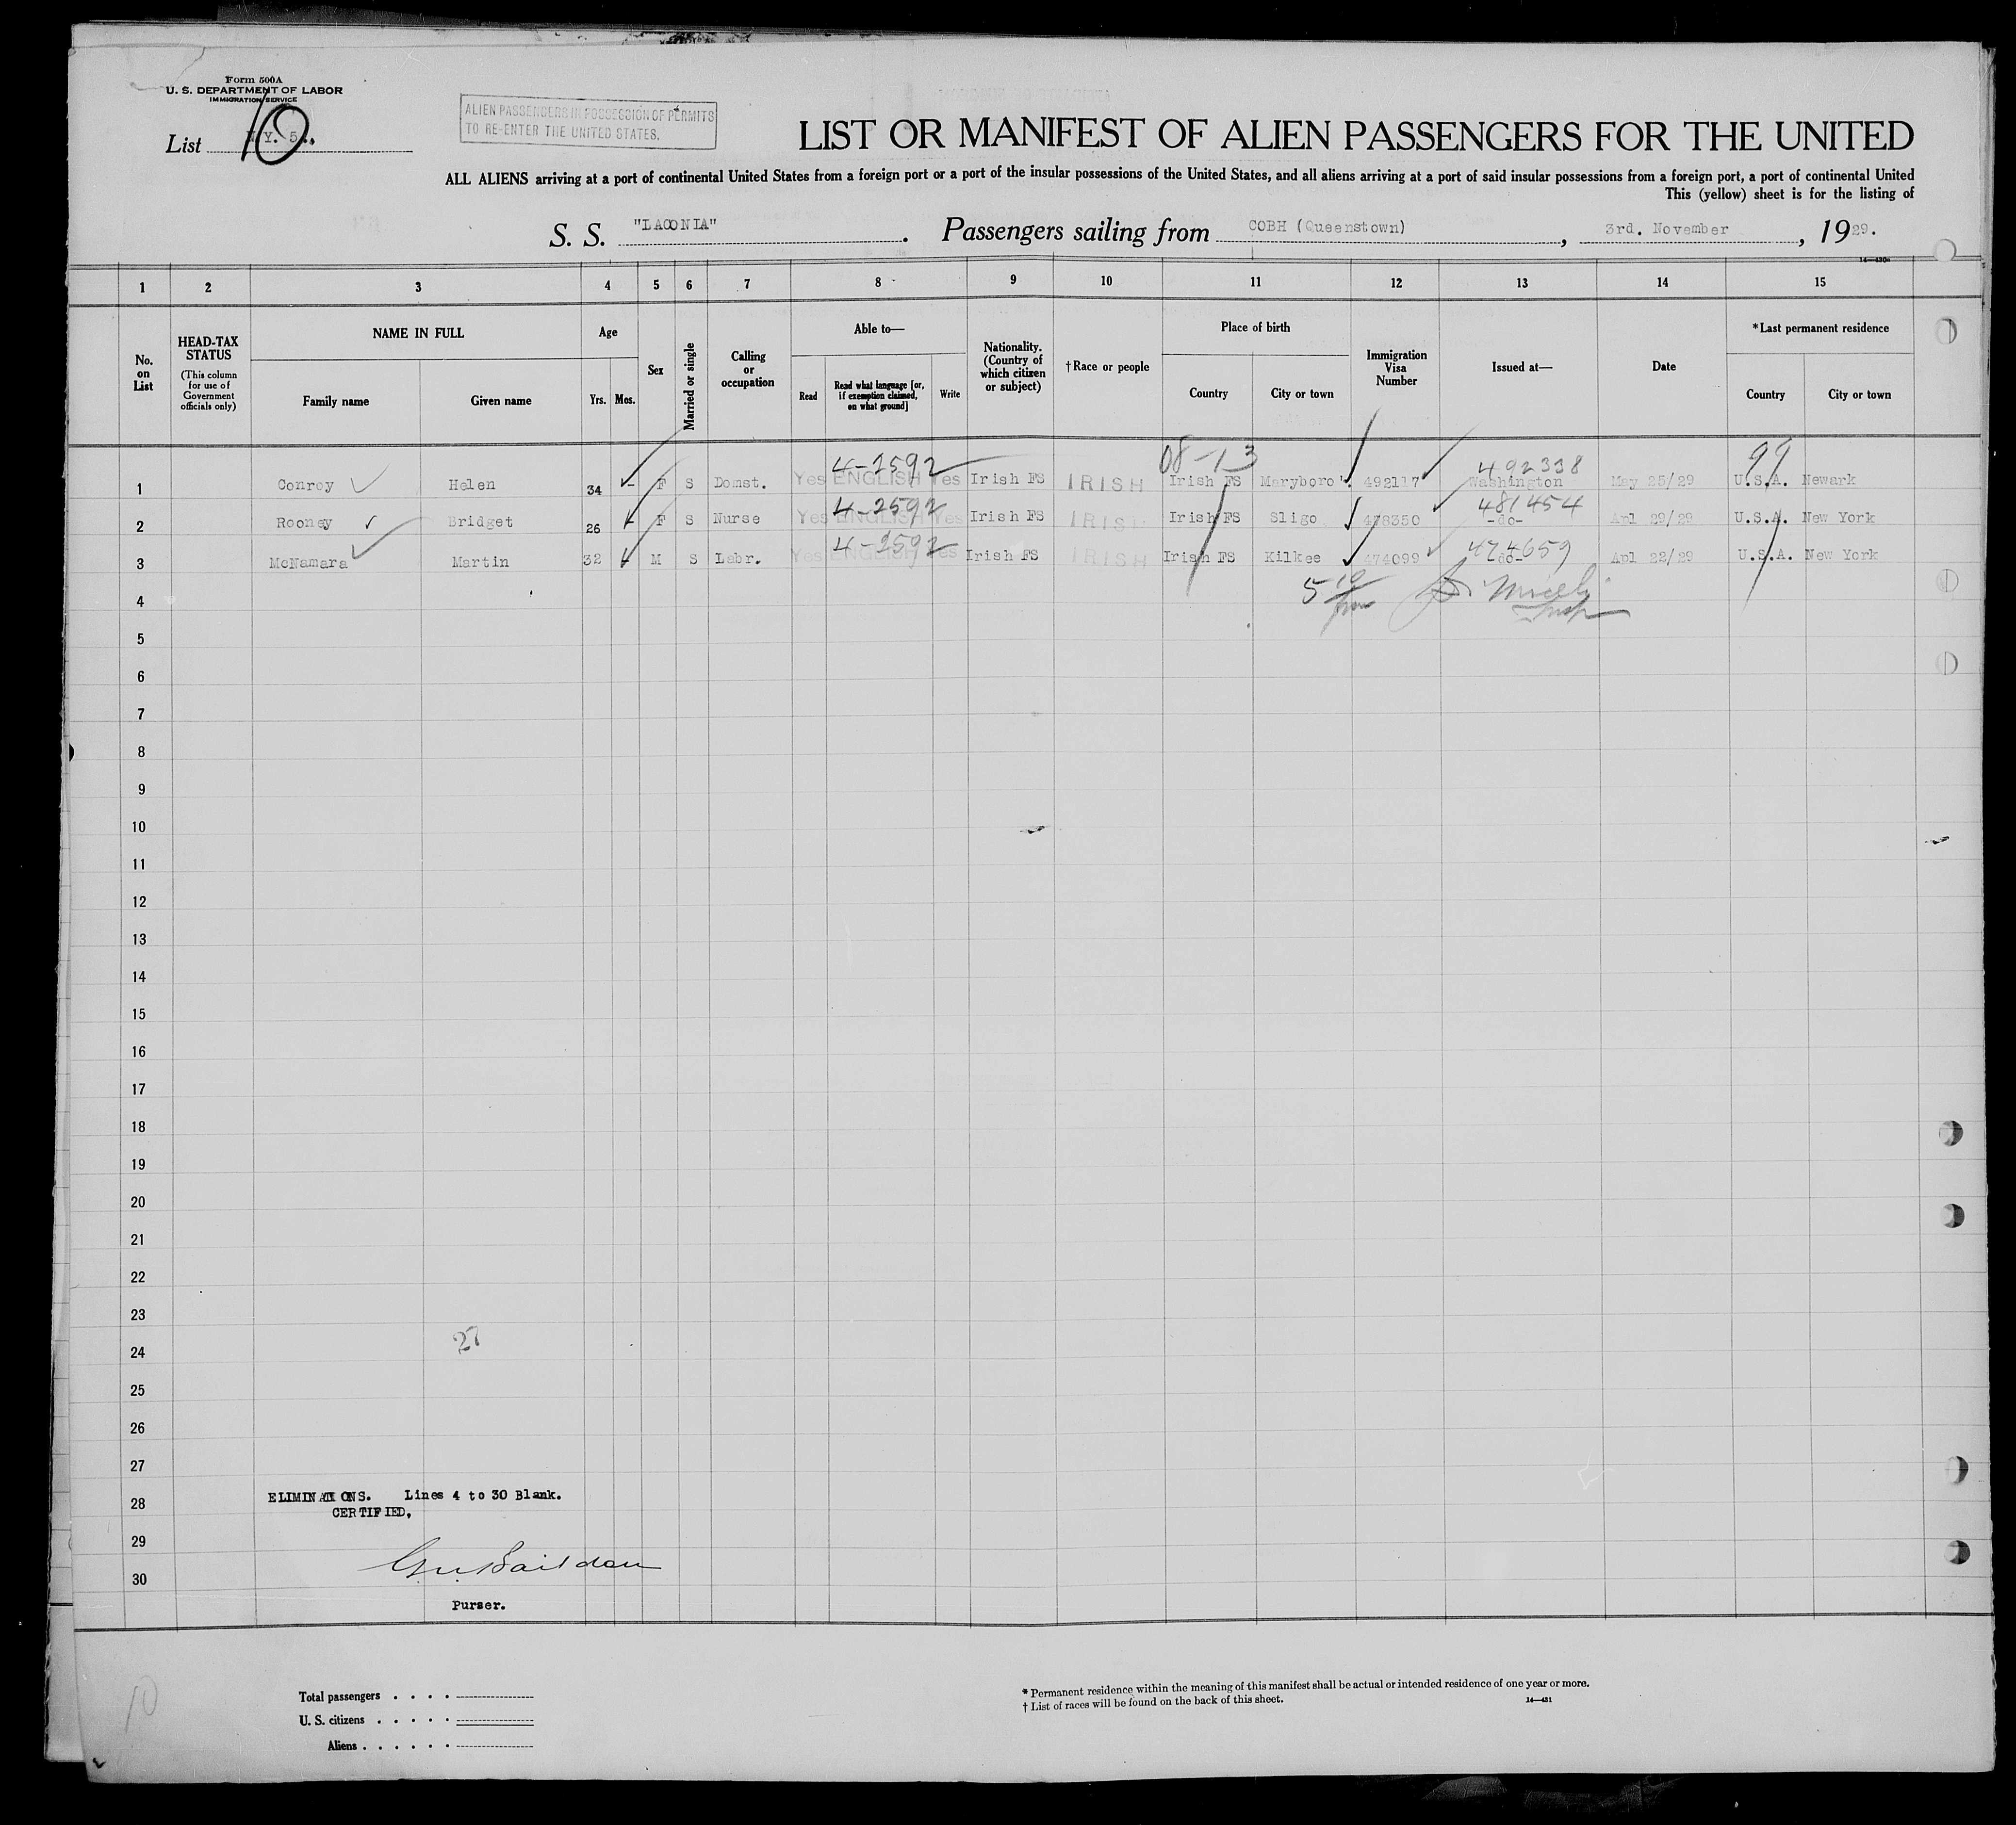 Form 500A
U. S. DEPARTMENT OF LABOR
IMMIGRATION SERVICE
List 10
ALIEN PASSENGERS IN POSSESSION OF PERMITS
TO RE-ENTER THE UNITED STATES.
LIST OR MANIFEST OF ALIEN PASSENGERS FOR THE UNITED
ALL ALIENS arriving at a port of continental United States from a foreign port or a port of the insular possessions of the United States, and all aliens arriving at a port of said insular possessions from a foreign port, a port of continental United
This (yellow) sheet is for the listing of
S. S. "LACONIA" . Passengers sailing from COBH (Queenstown) , 3rd. November , 1929.
1 2 3 4 5 6 7 8 9 10 11 12 13 14 15
No. on List
HEAD-TAX STATUS
(This column for use of Government officials only)
NAME IN FULL
Family name Given name
Age
Yrs. Mos.
Sex
Married or single
Calling or occupation
Able to—
Read Read what language [or, if exemption claimed, on what ground] Write
Nationality. (Country of which citizen or subject)
†Race or people
Place of birth
Country City or town
Immigration Visa Number
Issued at—
Date
*Last permanent residence
Country City or town
4-2592 08-13 492338 99
1 Conroy Helen 34 - F S Domst. Yes ENGLISH Yes Irish FS IRISH Irish FS Maryboro'. 492117 Washington May 25/29 U.S.A. Newark
4-2592 481454
2 Rooney Bridget 26 - F S Nurse Yes ENGLISH Yes Irish FS IRISH Irish FS Sligo 478350 -do- Apl 29/29 U.S.A. New York
4-2592 474659
3 McNamara Martin 32 M S Labr. Yes ENGLISH Yes Irish FS IRISH Irish FS Kilkee 474099 -do- Apl 22/29 U.S.A. New York
4
5
6
7
8
9
10
11
12
13
14
15
16
17
18
19
20
21
22
23
27
24
25
26
27
28 ELIMINATIONS. Lines 4 to 30 Blank.
CERTIFIED,
29
30
Purser.
10
Total passengers . . . .
U. S. citizens . . . . .
Aliens . . . . . .
* Permanent residence within the meaning of this manifest shall be actual or intended residence of one year or more.
† List of races will be found on the back of this sheet. 14—431